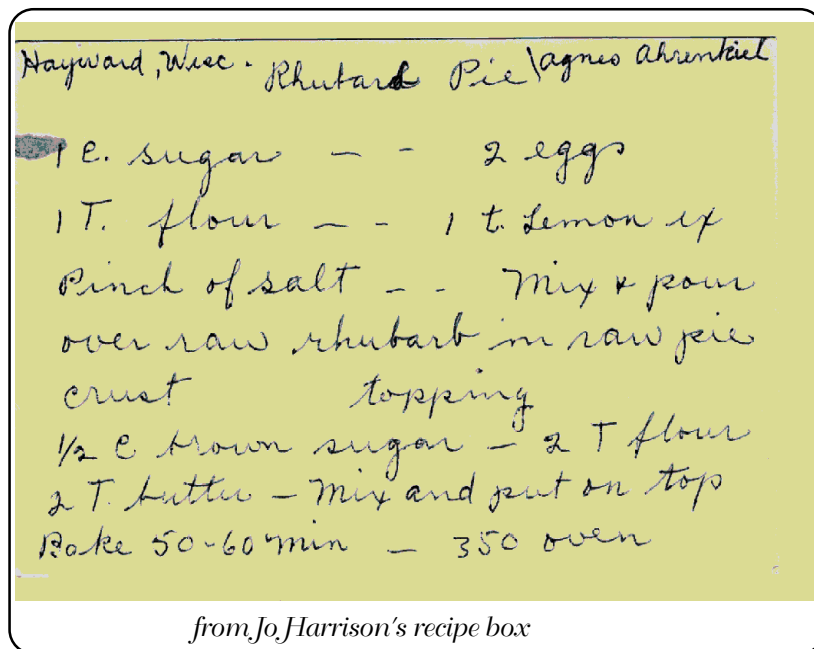 Hayward, Wisc. Rhubarb Pie \ Agnes Ahrenkiel
1 C. sugar - - 2 eggs
1 T. flour - - 1 t. Lemon ex
Pinch of salt - - Mix & pour
over raw rhubarb in raw pie
crust topping
1/2 C brown sugar - 2 T flour
2 T. butter - Mix and put on top
Bake 50-60 min - 350 oven
from Jo Harrison's recipe box